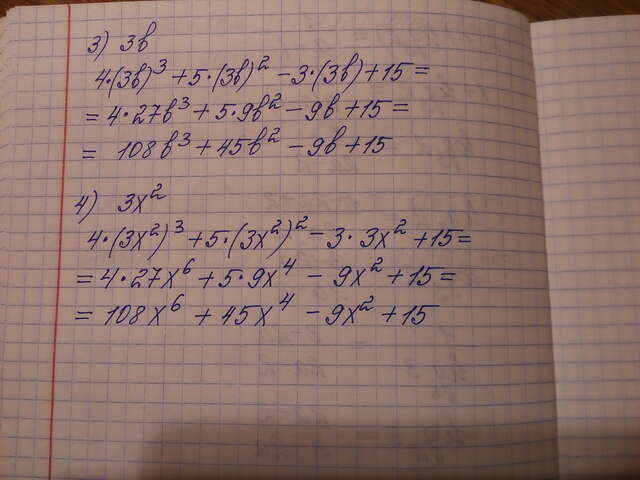 3) 3b
4·(3b)³+5·(3b)²-3·(3b)+15=
=4·27b³+5·9b²-9b+15=
= 108b³+45b²-9b+15
4) 3x²
4·(3x²)³+5·(3x²)²-3·3x²+15=
=4·27x⁶+5·9x⁴-9x²+15=
=108x⁶+45x⁴-9x²+15